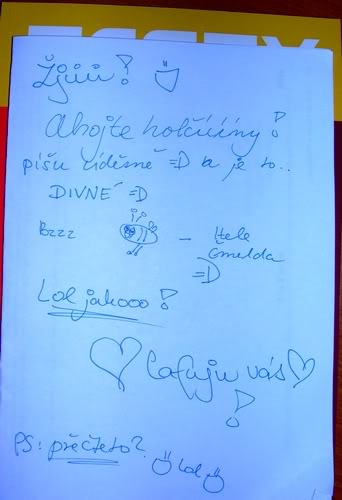 Žjůůů!
Ahojte holčííny!
píšu příšerně =D a je to..
DIVNÉ =D
Bzzz
– Hele čmelda
=D
Lol jakooo!
Lafuju vás!
PS: přečteto?
Lol